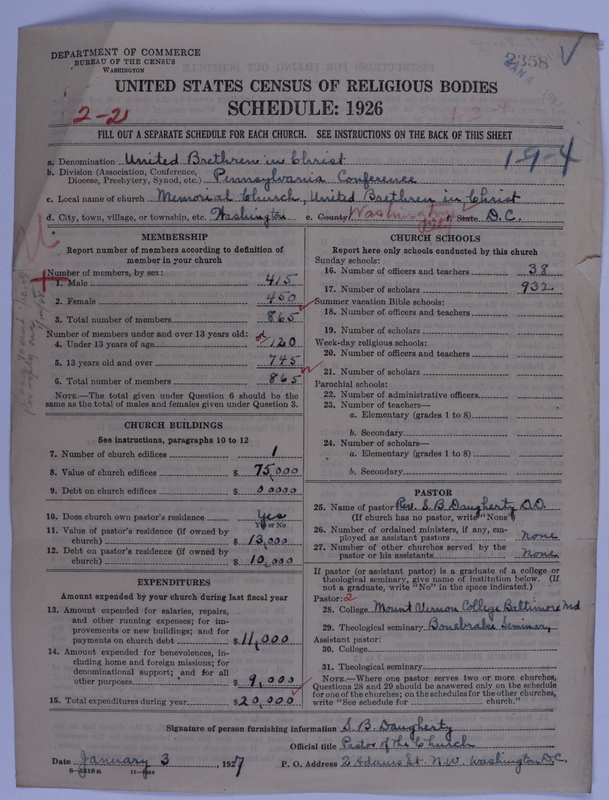 DEPARTMENT OF COMMERCE
BUREAU OF THE CENSUS
WASHINGTON
2358
UNITED STATES CENSUS OF RELIGIOUS BODIES
SCHEDULE: 1926
2-2
1-3-4
FILL OUT A SEPARATE SCHEDULE FOR EACH CHURCH. SEE INSTRUCTIONS ON THE BACK OF THIS SHEET
1-9-4
a. Denomination United Brethren in Christ
b. Division (Association, Conference,
Diocese, Presbytery, Synod, etc.) Pennsylvania Conference
c. Local name of church Memorial Church, United Brethren in Christ
d. City, town, village, or township, etc. Washington e. County Washington f. State D.C.
MEMBERSHIP
Report number of members according to definition of
member in your church
Number of members, by sex:
1. Male 415
2. Female 450
3. Total number of members 865
Number of members under and over 13 years old:
4. Under 13 years of age 120
5. 13 years old and over 745
6. Total number of members 865
NOTE.—The total given under Question 6 should be the
same as the total of males and females given under Question 3.
CHURCH BUILDINGS
See instructions, paragraphs 10 to 12
7. Number of church edifices 1
8. Value of church edifices $ 75,000
9. Debt on church edifices $ 00000
10. Does church own pastor's residence Yes
Yes or No
11. Value of pastor's residence (if owned by
church) $ 13,000
12. Debt on pastor's residence (if owned by
church) $ 10,000
EXPENDITURES
Amount expended by your church during last fiscal year
13. Amount expended for salaries, repairs,
and other running expenses; for im-
provements or new buildings; and for
payments on church debt $ 11,000
14. Amount expended for benevolences, in-
cluding home and foreign missions; for
denominational support; and for all
other purposes $ 9,000
15. Total expenditures during year $ 20,000
CHURCH SCHOOLS
Report here only schools conducted by this church
Sunday schools:
16. Number of officers and teachers 38
17. Number of scholars 932
Summer vacation Bible schools:
18. Number of officers and teachers
19. Number of scholars
Week-day religious schools:
20. Number of officers and teachers
21. Number of scholars
Parochial schools:
22. Number of administrative officers
23. Number of teachers—
a. Elementary (grades 1 to 8)
b. Secondary
24. Number of scholars—
a. Elementary (grades 1 to 8)
b. Secondary
PASTOR
25. Name of pastor Rev. S. B. Daugherty D.D.
(If church has no pastor, write "None")
26. Number of ordained ministers, if any, em-
ployed as assistant pastors none
27. Number of other churches served by the
pastor or his assistants none
If pastor (or assistant pastor) is a graduate of a college or
theological seminary, give name of institution below. (If
not a graduate, write "No" in the space indicated.)
Pastor: 2
28. College Mount Vernon College Baltimore Md
29. Theological seminary Bonebrake Seminary
Assistant pastor:
30. College
31. Theological seminary
NOTE.—Where one pastor serves two or more churches,
Questions 28 and 29 should be answered only on the schedule
for one of the churches; on the schedules for the other churches,
write "See schedule for church."
Signature of person furnishing information S. B. Daugherty
Official title Pastor of the Church
Date January 3, 1927 P. O. Address 2 Adams St. N.W. Washington D.C.
8-5518a 11-9224